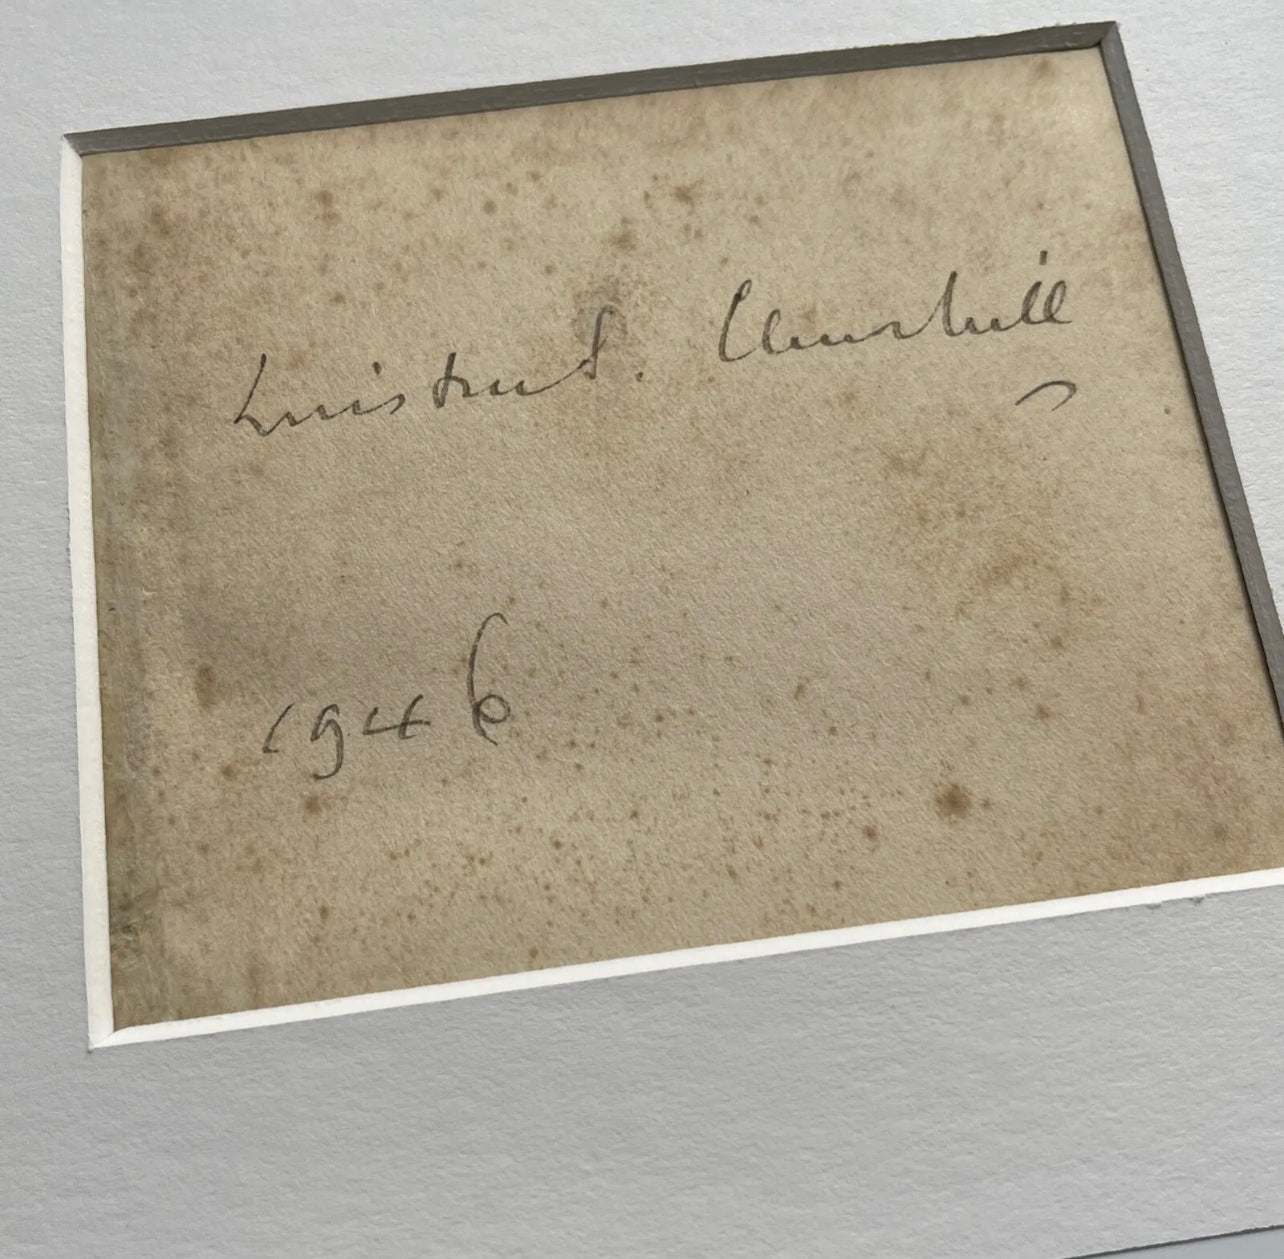 Winston S. Churchill
1946